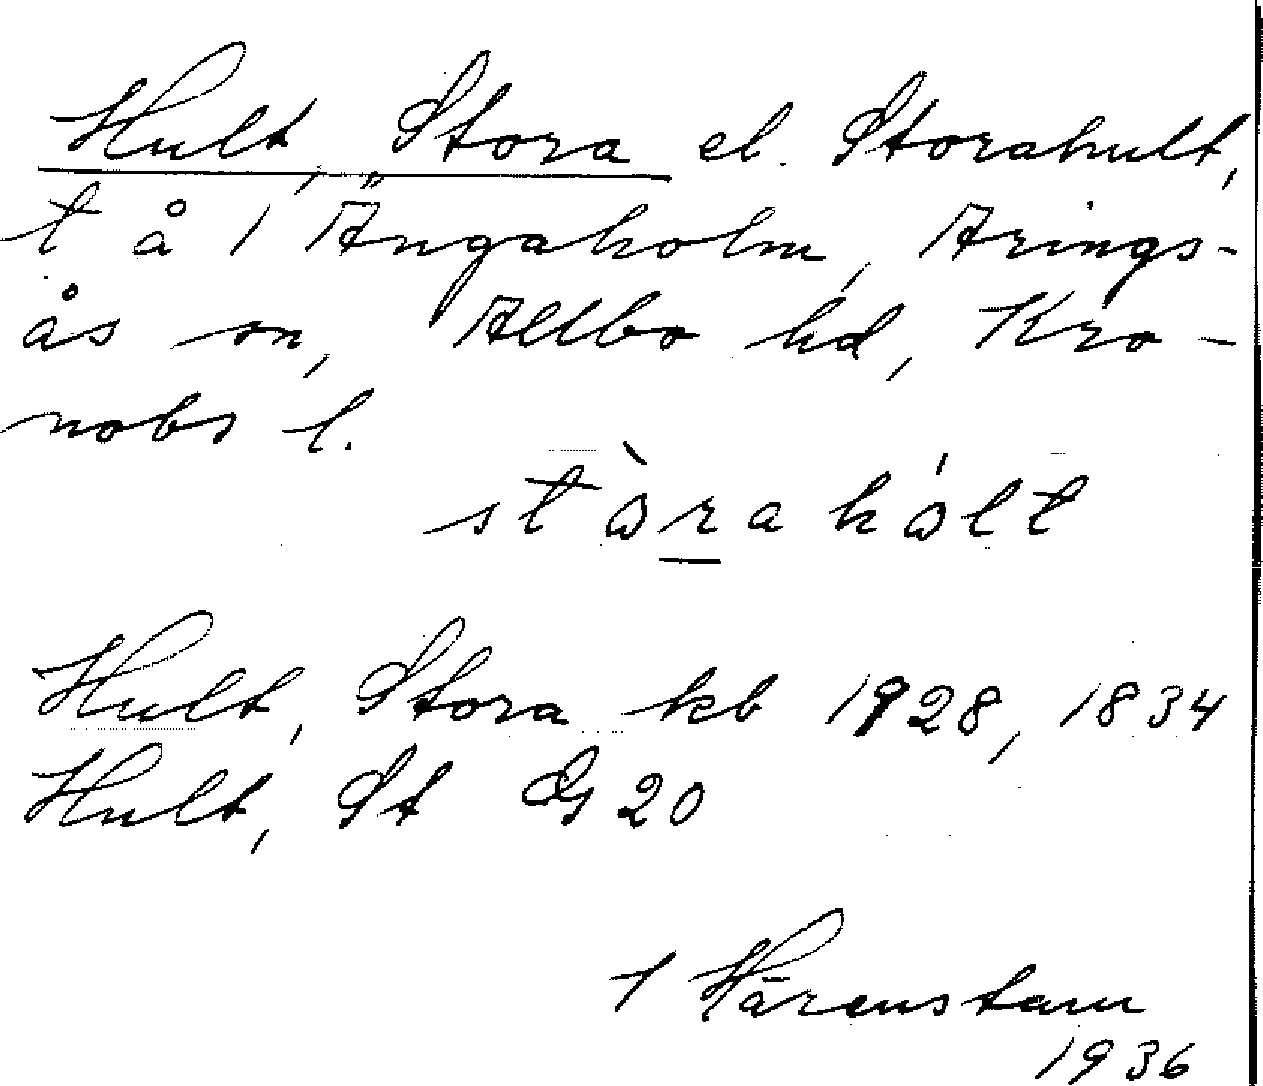 Hult, Stora el. Storahult,
t å 1 Ängaholm, Arings-
ås sn, Allbo hd, Kro-
nobs l.
stὼrahώlt
Hult, Stora kb 1928, 1834
Hult, St G 20
T Härenstam
1936